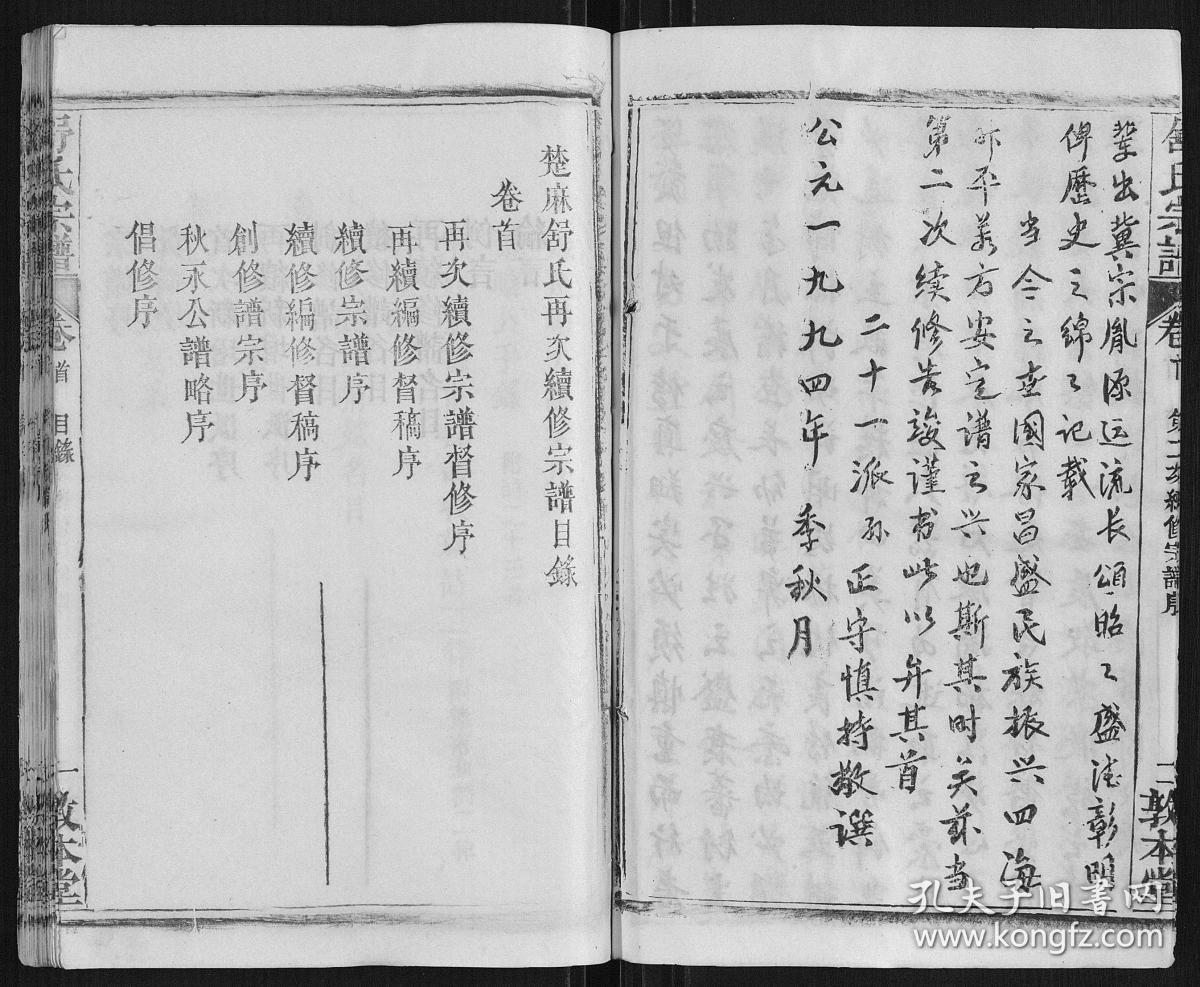 舒氏宗譜
卷首
第二次續修宗譜序
二
敦本堂
輩出冀宗胤源远流长頌昭々盛德彰明
俾歷史之綿々记载
当今之世國家昌盛民族振兴四海
昇平万方安定譜之兴也斯其时矣兹当
第二次续修告竣谨书此以弁其首
二十一派孙正守慎持敬譔
公元一九九四年季秋月
楚麻舒氏再次續修宗譜目錄
卷首
再次續修宗譜督修序
再續編修督稿序
續修宗譜序
續修編修督稿序
創修譜宗序
秋永公譜略序
倡修序
舒氏宗譜
卷首
目錄
一
敦本堂
孔夫子旧书网
www.kongfz.com